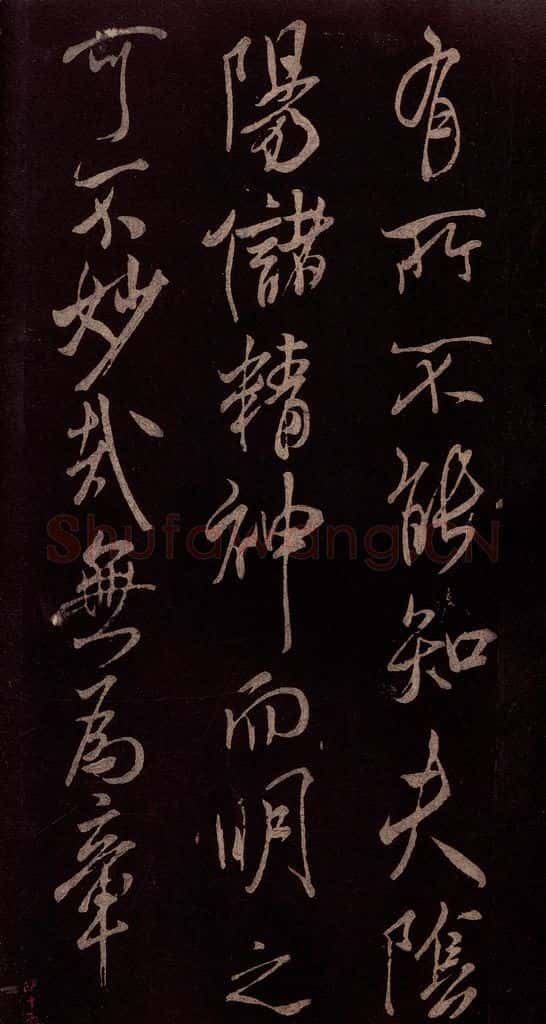 有所不能知夫陰
陽儲精神而明之
可不妙哉無為章
ShufaWang.CN